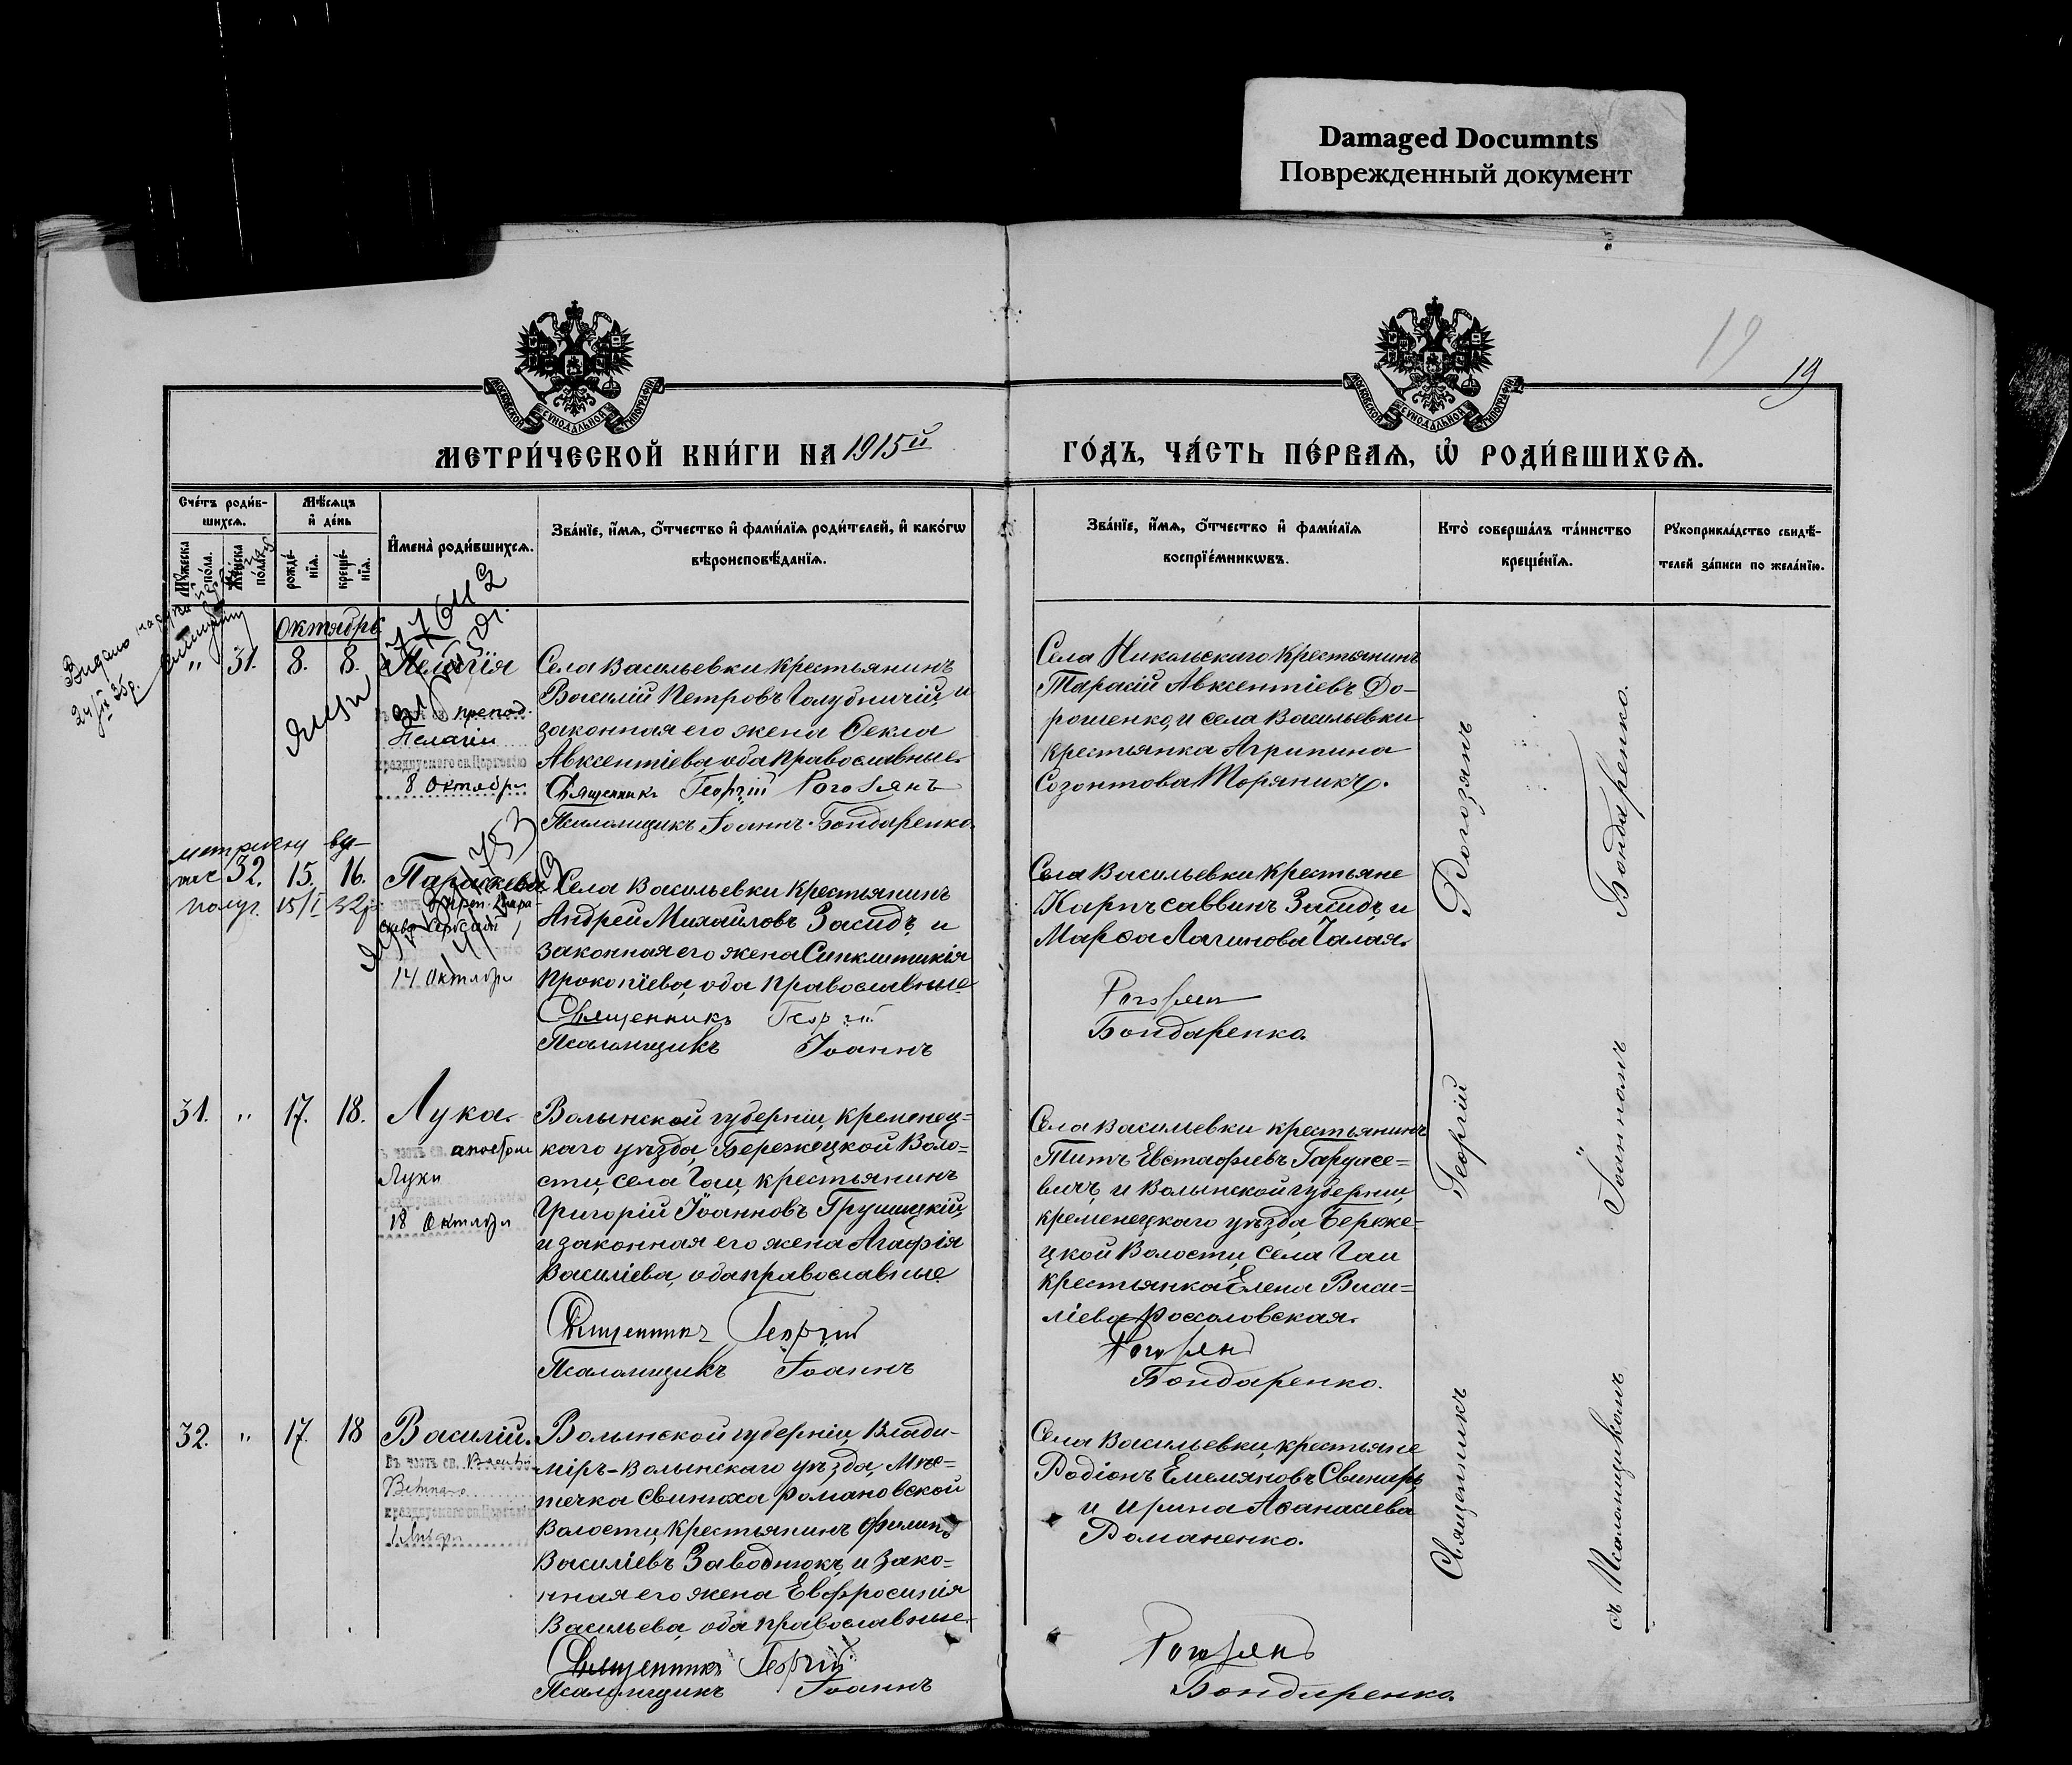 Damaged Documnts
Поврежденный документ
19
19
МОСКОВСКОЙ СѴНОДАЛЬНОЙ ТИПОГРАФІИ
МОСКОВСКОЙ СѴНОДАЛЬНОЙ ТИПОГРАФІИ
МЕТРИ́ЧЕСКОЙ КНИ́ГИ НА 1915й
ГО́ДЪ, ЧА́СТЬ ПЕ́РВАѦ, Ѡ҆ РОДИ́ВШИХСѦ.
Сче́тъ роди́в-
шихсѧ.
Мꙋ́жеска по́ла.
Же́нска по́ла.
Мѣ́сѧцъ
и҆ де́нь
рожде́-
нїѧ.
креще́-
нїѧ.
И҆мена̀ роди́вшихсѧ.
Зва́нїе, и҆́мѧ, ѻ҆́тчество и҆ фами́лїѧ роди́телей, и҆ како́гѡ
вѣроисповѣ́данїѧ.
Зва́нїе, и҆́мѧ, ѻ҆́тчество и҆ фами́лїѧ
воспрїе́мникѡвъ.
Кто̀ соверша́лъ та́инство
креще́нїѧ.
Рꙋкоприкла́дство свидѣ́-
телей за́писи по жела́нїю.
Октябрь
„ 31. 8. 8. Пелагія
препод.
Пелагіи
празднуемого св. Церковію
8 Октябри
Села Васильевки крестьянинъ
Василій Петровъ Голубничій, и
законная его жена Ѳекла
Авксентіева, оба православные.
Священникъ Георгій Рогозянъ
Псаломщикъ Іоаннъ Бондаренко.
Села Никольскаго крестьянинъ
Тарасій Авксентіевъ До-
рошенко, и села Васильевки
крестьянка Агрипина
Созонтова Торяникъ.
Видано
метричну
32. 15. 16. Параскева
14 Октября
Села Васильевки крестьянинъ
Андрей Михайловъ Засидъ, и
законная его жена Синклитикія
Прокопіева, оба православные
Священникъ Георгій
Псаломщикъ Іоаннъ
Села Васильевки крестьяне
Карпъ Саввинъ Засидъ, и
Марѳа Логинова Чалая.
Рогозянъ
Бондаренко.
31. „ 17. 18. Лука.
въ честь св. апостола
Луки
18 Октября
Волынской губерніи, Кременец=
каго уѣзда, Бережецкой Воло=
сти, села Гаи, крестьянинъ
Григорій Іоанновъ Грушицкій,
и законная его жена Агафія
Василіева, оба православные
Священникъ Георгій
Псаломщикъ Іоаннъ
Села Васильевки крестьянинъ
Титъ Евстафіевъ
вичъ, и Волынской губерніи,
Кременецкаго уѣзда, Береже=
цкой Волости, села Гаи
крестьянка Елена Васи=
ліева
Рогозянъ
Бондаренко.
32. „ 17. 18 Василій.
Въ честь св. Василія
Великаго
празднуемого св. Церковію
1 Января
Волынской губерніи, Влади-
міръ-Волынскаго уѣзда, Мѣс=
течка Свинюха Романовской
Волости, крестьянинъ Филипъ
Василіевъ Заводнюкъ, и зако=
нная его жена Евфросинія
Васильева, оба православные.
Священникъ Георгій
Псаломщикъ Іоаннъ
Села Васильевки, крестьяне
Родіонъ Емельяновъ Свинарь
и Ирина Аѳанасіева
Романенко.
Рогозянъ
Бондаренко.
Священникъ Георгій Рогозянъ
съ Псаломщикомъ Іоанномъ Бондаренко.